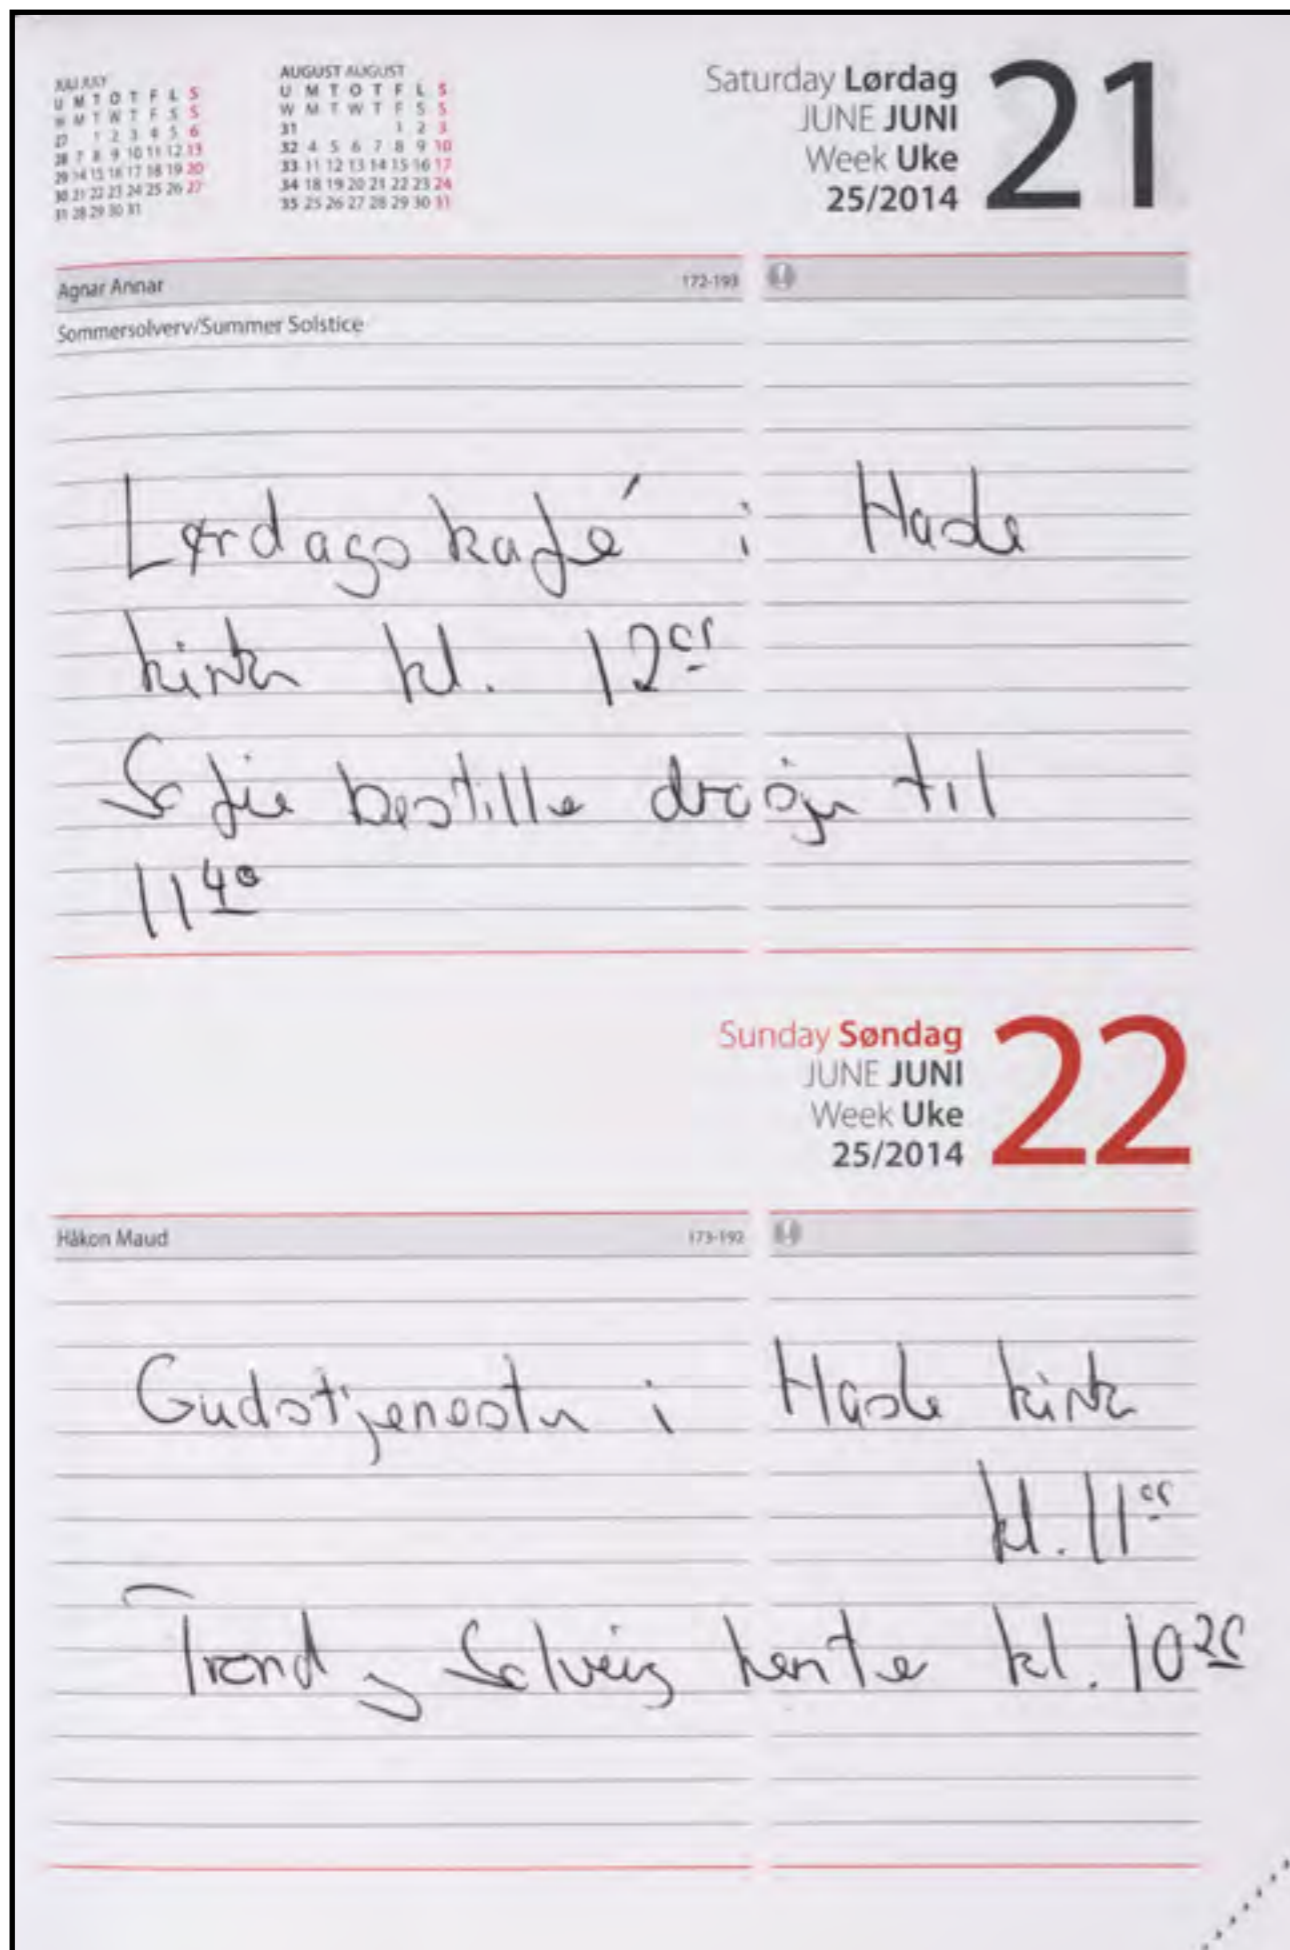 JULI JULY
U M T O T F L S
W M T W T F S S
27 1 2 3 4 5 6
28 7 8 9 10 11 12 13
29 14 15 16 17 18 19 20
30 21 22 23 24 25 26 27
31 28 29 30 31
AUGUST AUGUST
U M T O T F L S
W M T W T F S S
31 1 2 3
32 4 5 6 7 8 9 10
33 11 12 13 14 15 16 17
34 18 19 20 21 22 23 24
35 25 26 27 28 29 30 31
Saturday Lørdag
JUNE JUNI
Week Uke
25/2014
21
Agnar Annar 172-193
Sommersolverv/Summer Solstice
Lørdagskafé i Hasle
kirke kl. 12 00
Sofie bestille drosje til
11 40
Sunday Søndag
JUNE JUNI
Week Uke
25/2014
22
Håkon Maud 173-192
Gudstjeneste i Hasle kirke
kl. 11 00
Trond og Solveig hente kl. 10